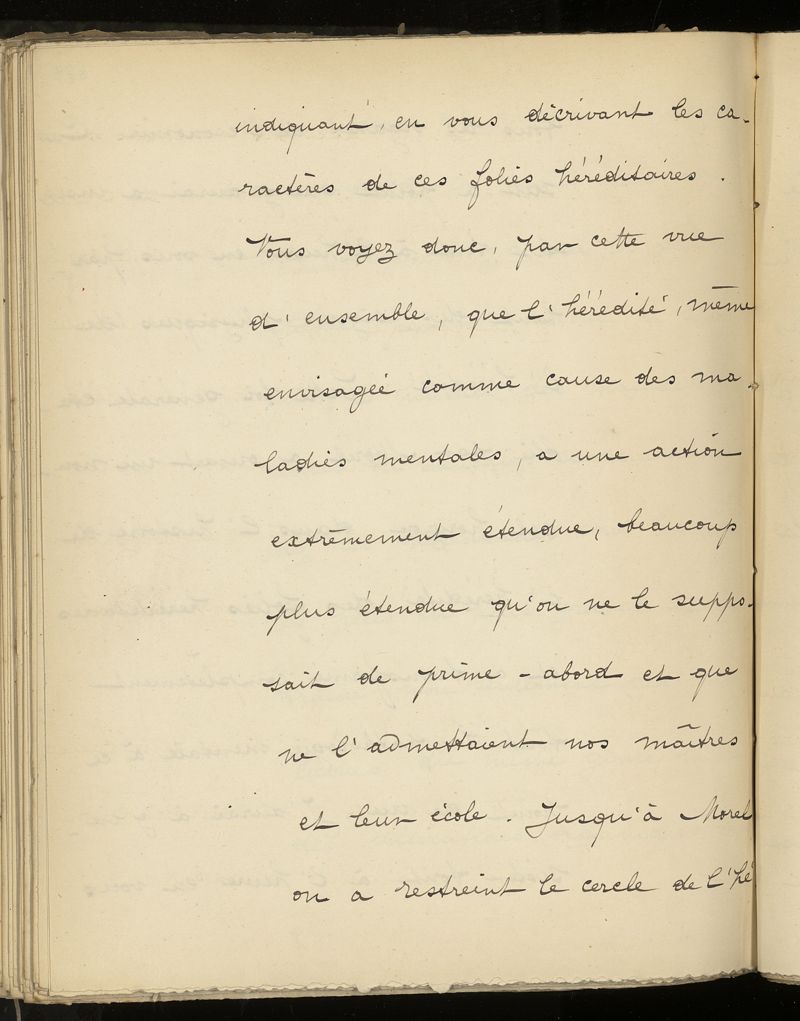 indiquant, en vous décrivant les ca-
ractères de ces folies héréditaires.
Vous voyez donc, par cette vue
d'ensemble, que l'hérédité, même
envisagée comme cause des ma-
ladies mentales, a une action
extrêmement étendue, beaucoup
plus étendue qu'on ne le suppo-
sait de prime-abord et que
ne l'admettaient nos maîtres
et leur école. Jusqu'à Morel
on a restreint le cercle de l'hé